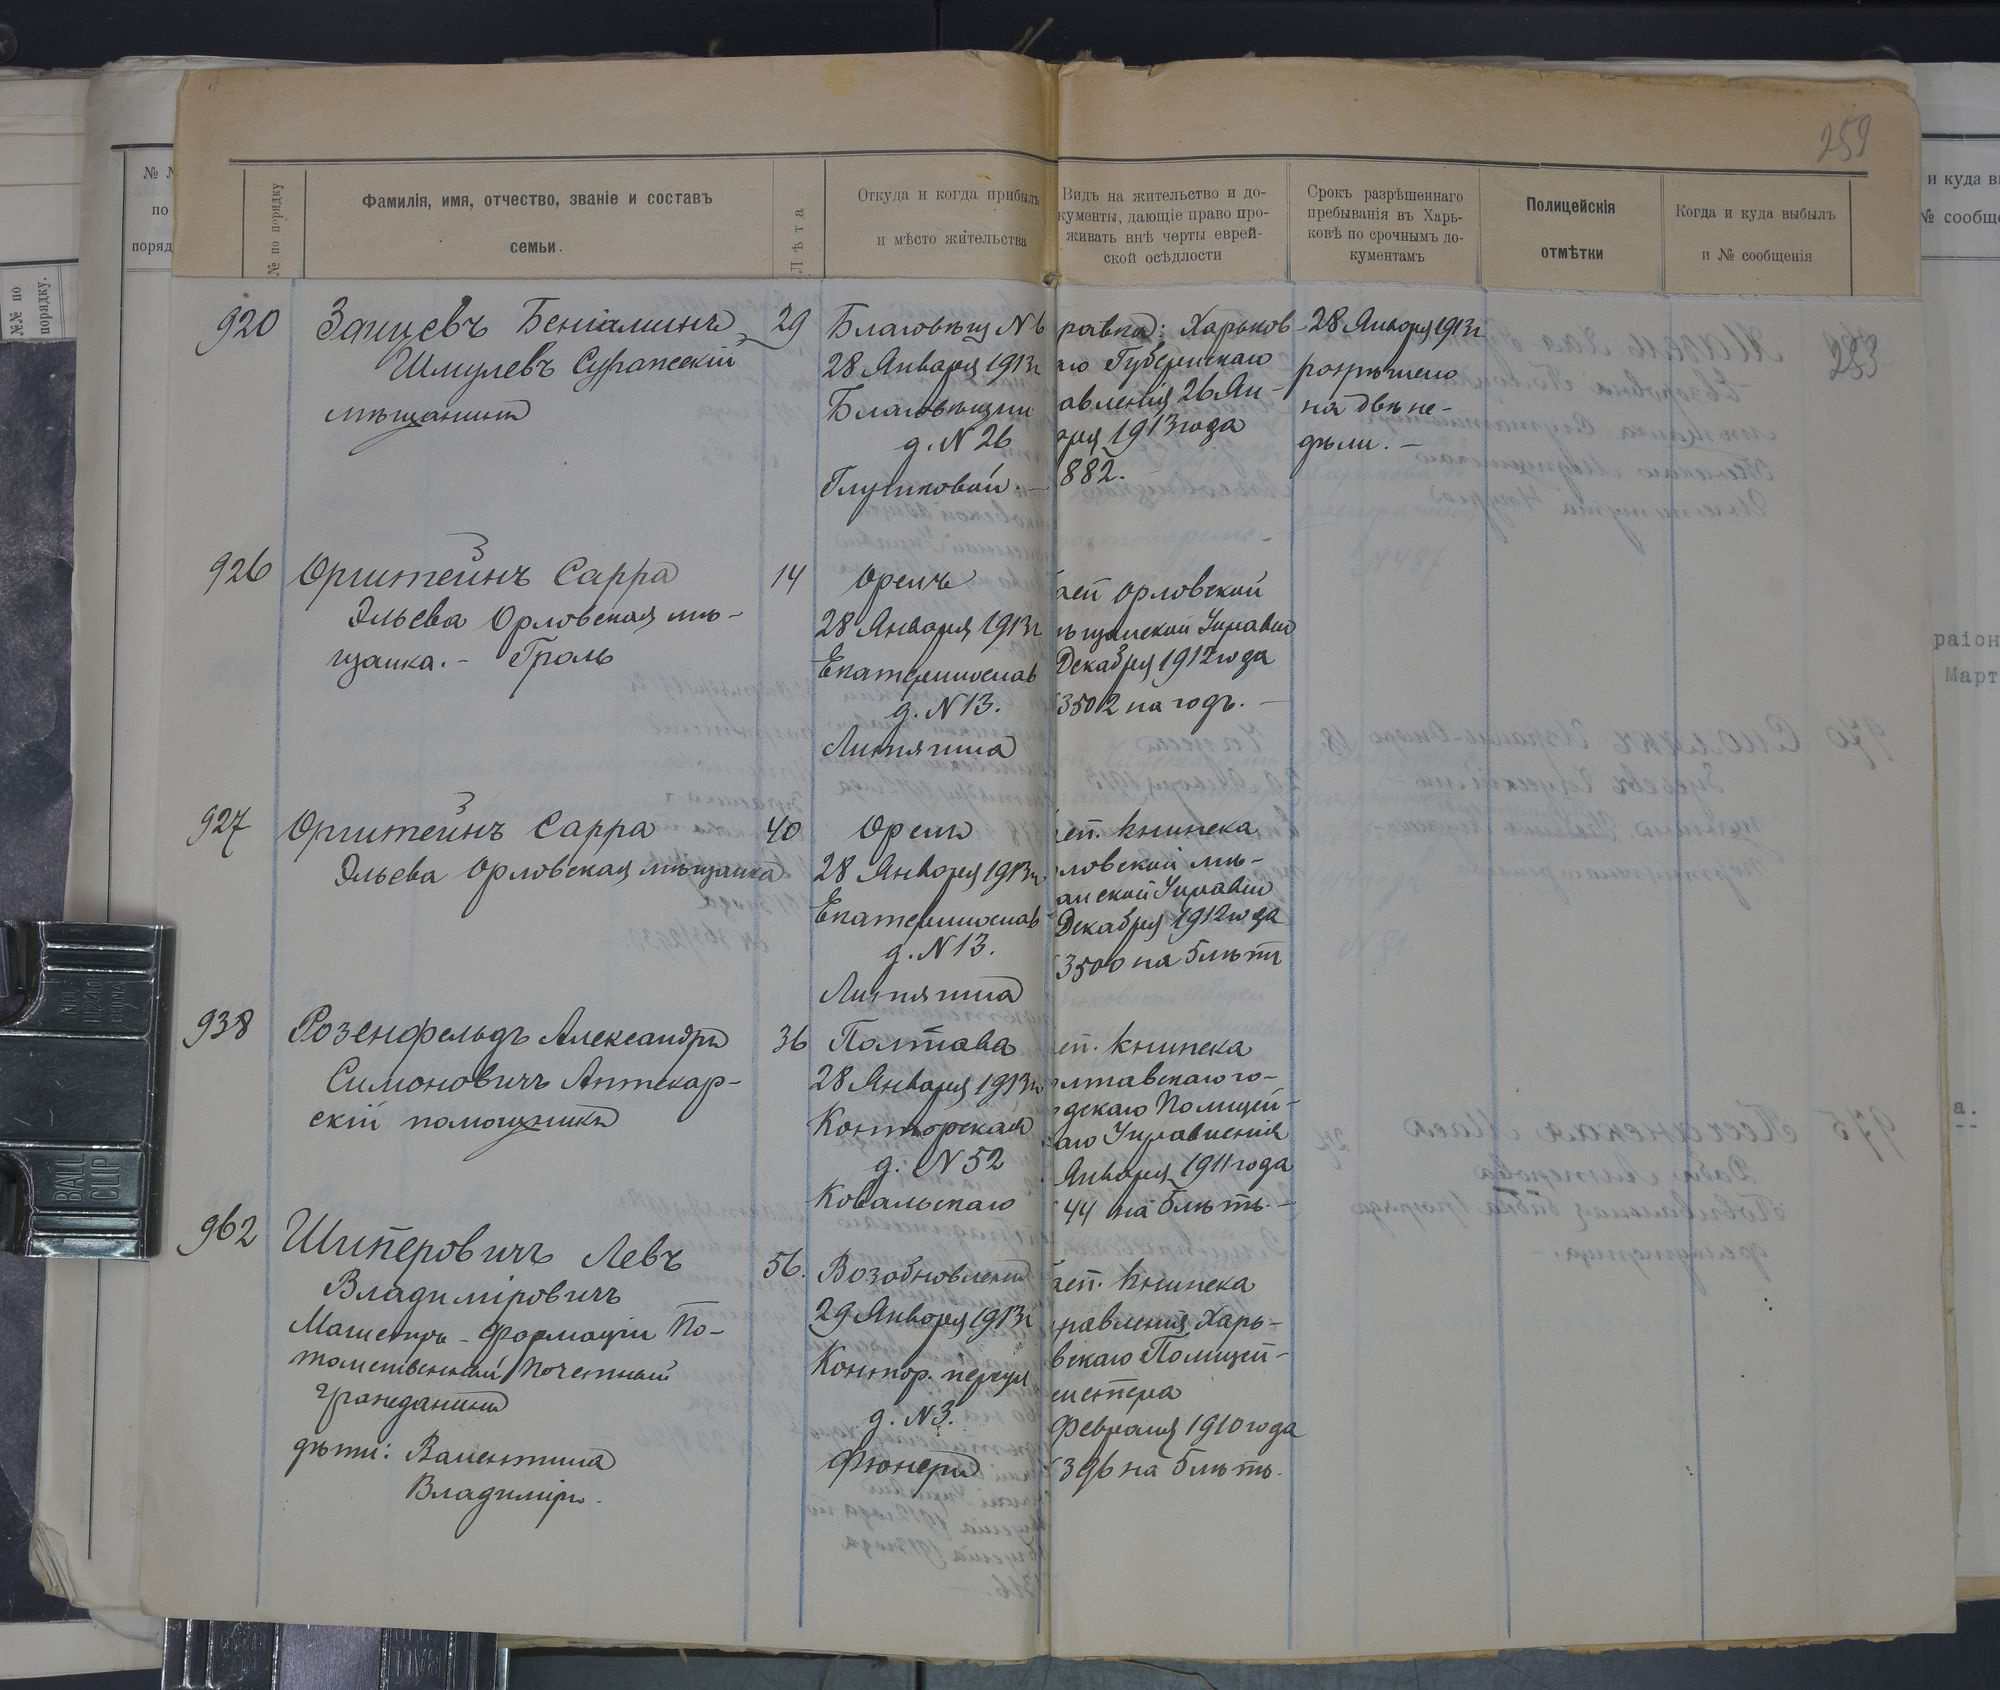 259
№ по порядку
Фамилія, имя, отчество, званіе и составъ
семьи.
Лѣта
Откуда и когда прибылъ
и мѣсто жительства
Видъ на жительство и до-
кументы, дающіе право про-
живать внѣ черты еврей-
ской осѣдлости
Срокъ разрѣшеннаго
пребыванія въ Харь-
ковѣ по срочнымъ до-
кументамъ
Полицейскія
отмѣтки
Когда и куда выбылъ
и № сообщенія
253
920
Зайцевъ Беніаминъ
Шмулевъ Суражскій
мѣщанинъ
29
28 Января 1913 г
д. N 26
равка: Харьков
го Губернскаго
авленія 26 Ян-
аря 1913 года
882.
28 Января 1913 г.
разрѣшено
на двѣ не-
дѣли. –
926
Орштейнъ Сарра
Эльева Орловская мѣ-
щанка. –
14
Орелъ
28 Января 1913 г
Екатеринослав
д. N 13.
Орловской
ѣщанской Управы
Декабря 1912 года
3502 на годъ. –
927
Орштейнъ Сарра
Эльева Орловская мѣщанка
40
Орелъ
28 Января 1913 г
Екатеринослав
д. N 13.
еп. книжка
ловской мѣ-
анской Управы
Декабря 1912 года
3500 на 5 лѣтъ
938
Розенфельдъ Александръ
Симоновичъ Аптекар-
скій помощникъ
36
Полтава
28 Января 1913 г
Конторская
д. N 52
Ковальскаго
еп. книжка
олтавскаго го-
дскаго Полицей-
аго Управленія
Января 1911 года
44 на 5 лѣтъ. –
962
Шиперовичъ Левъ
Владиміровичъ
Магистръ - Формаціи По-
томственный Почетный
гражданинъ
дѣти: Валентина
Владиміръ.
56.
Возобновленъ
29 Января 1913 г
Контор. переул
д. N 3.
еп. книжка
правленія Харь-
вскаго Полицей-
мейстера
Февраля 1910 года
396 на 5 лѣтъ.